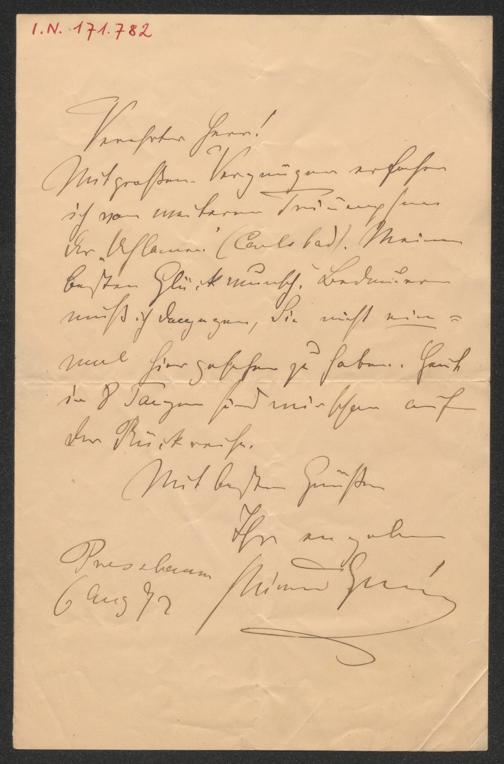 I.N. 171.782
Verehrter Herr!
Mit großem Vergnügen erfahre
ich von weiteren Triumphen
der (Carlsbad). Meinen
besten Glückwunsch. Bedauern
muß ich dagegen, Sie nicht ein=
mal hier gesehen zu haben. Heut
in 8 Tagen sind wir schon auf
der Rückreise.
Mit besten Grüßen
Ihr ergebener
Pressbaum
6 Aug